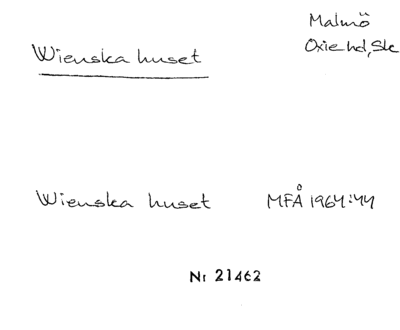 Malmö
Oxie hd, Sk
Wienska huset
Wienska huset MFÅ 1964:44
Nr 21462